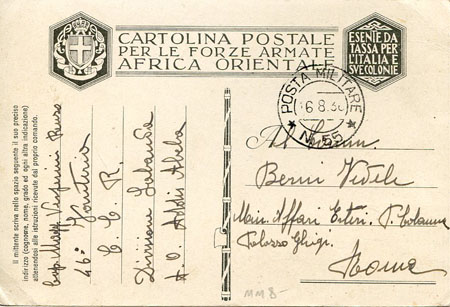 CARTOLINA POSTALE
PER LE FORZE ARMATE
AFRICA ORIENTALE
ESENTE DA
TASSA PER
L'ITALIA E
SVE COLONIE
POSTA MILITARE
6.8.36
N. 55
Il mittente scriva nello spazio seguente il suo preciso
indirizzo (cognome, nome, grado ed ogni altra indicazione)
attenendosi alle istruzioni ricevute dal proprio comando.
46° Fanteria
C. C. R.
Divisione Sabauda
A. O. Addis Abeba
Al
Berni Fidele
Min. Affari Esteri. P. Colonna
Palazzo Ghigi.
Roma
MM 8-